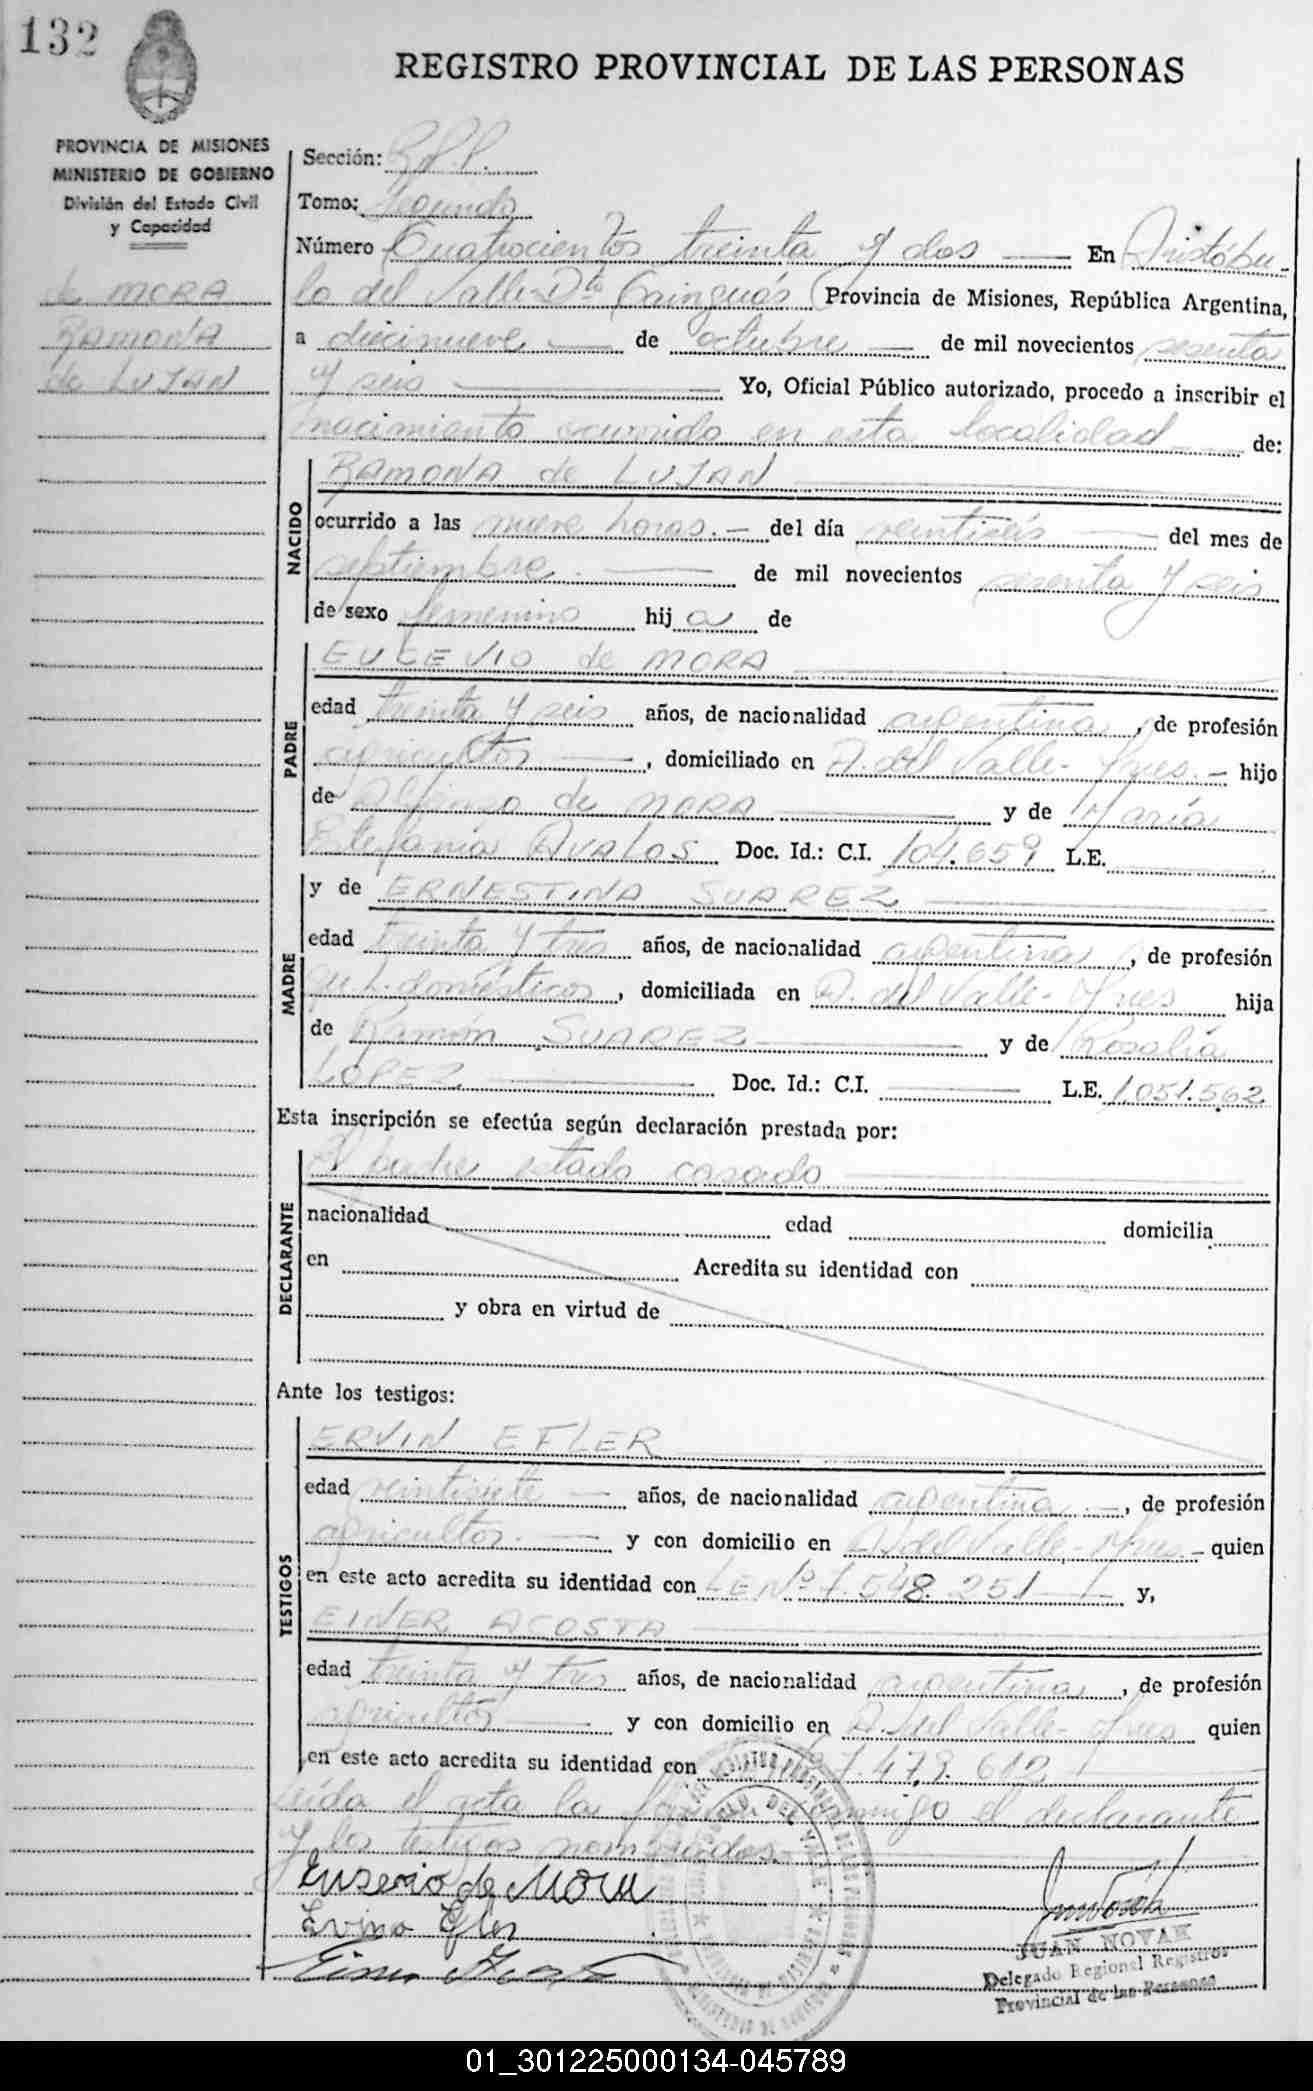 132
REGISTRO PROVINCIAL DE LAS PERSONAS
PROVINCIA DE MISIONES
MINISTERIO DE GOBIERNO
División del Estado Civil
y Capacidad
de MORA
RAMONA
de LUJAN
Sección:
Tomo: Segundo
Número Cuatrocientos treinta y dos En Aristóbu
lo del Valle-Dto Cainguás Provincia de Misiones, República Argentina,
a diecinueve de octubre de mil novecientos sesenta
y seis Yo, Oficial Público autorizado, procedo a inscribir el
nacimiento ocurrido en esta localidad de:
NACIDO
RAMONA de LUJAN
ocurrido a las nueve horas.- del día veintiséis del mes de
septiembre de mil novecientos sesenta y seis
de sexo femenino hij a de
PADRE
EUCEVIO de MORA
edad treinta y seis años, de nacionalidad argentina, de profesión
agricultor, domiciliado en A. del Valle- Mnes.- hijo
de Alfonzo de MORA y de María
Estefania AVALOS Doc. Id.: C.I. 104.659 L.E.
MADRE
y de ERNESTINA SUAREZ
edad treinta y tres años, de nacionalidad argentina, de profesión
qu h. domésticos, domiciliada en A. del Valle- Mnes hija
de Ramón SUAREZ y de Rosalía
LOPEZ Doc. Id.: C.I. L.E. 1.051.562
Esta inscripción se efectúa según declaración prestada por:
DECLARANTE
El padre estado casado
nacionalidad edad domicilia
en Acredita su identidad con
y obra en virtud de
Ante los testigos:
TESTIGOS
ERVIN EFLER
edad veintisiete años, de nacionalidad argentina, de profesión
agricultor y con domicilio en A. del Valle- Mnes.- quien
en este acto acredita su identidad con LE Nº 7.548.251 y,
EINER ACOSTA
edad treinta y tres años, de nacionalidad argentina, de profesión
agricultor y con domicilio en A. del Valle- Mnes quien
en este acto acredita su identidad con 7.479.612
Leída el acta la firman conmigo el declarante
y los testigos nombrados.
Euserio de Mora
JUAN NOVAK
Delegado Regional Registros
Provincial de las Personas
01_301225000134-045789